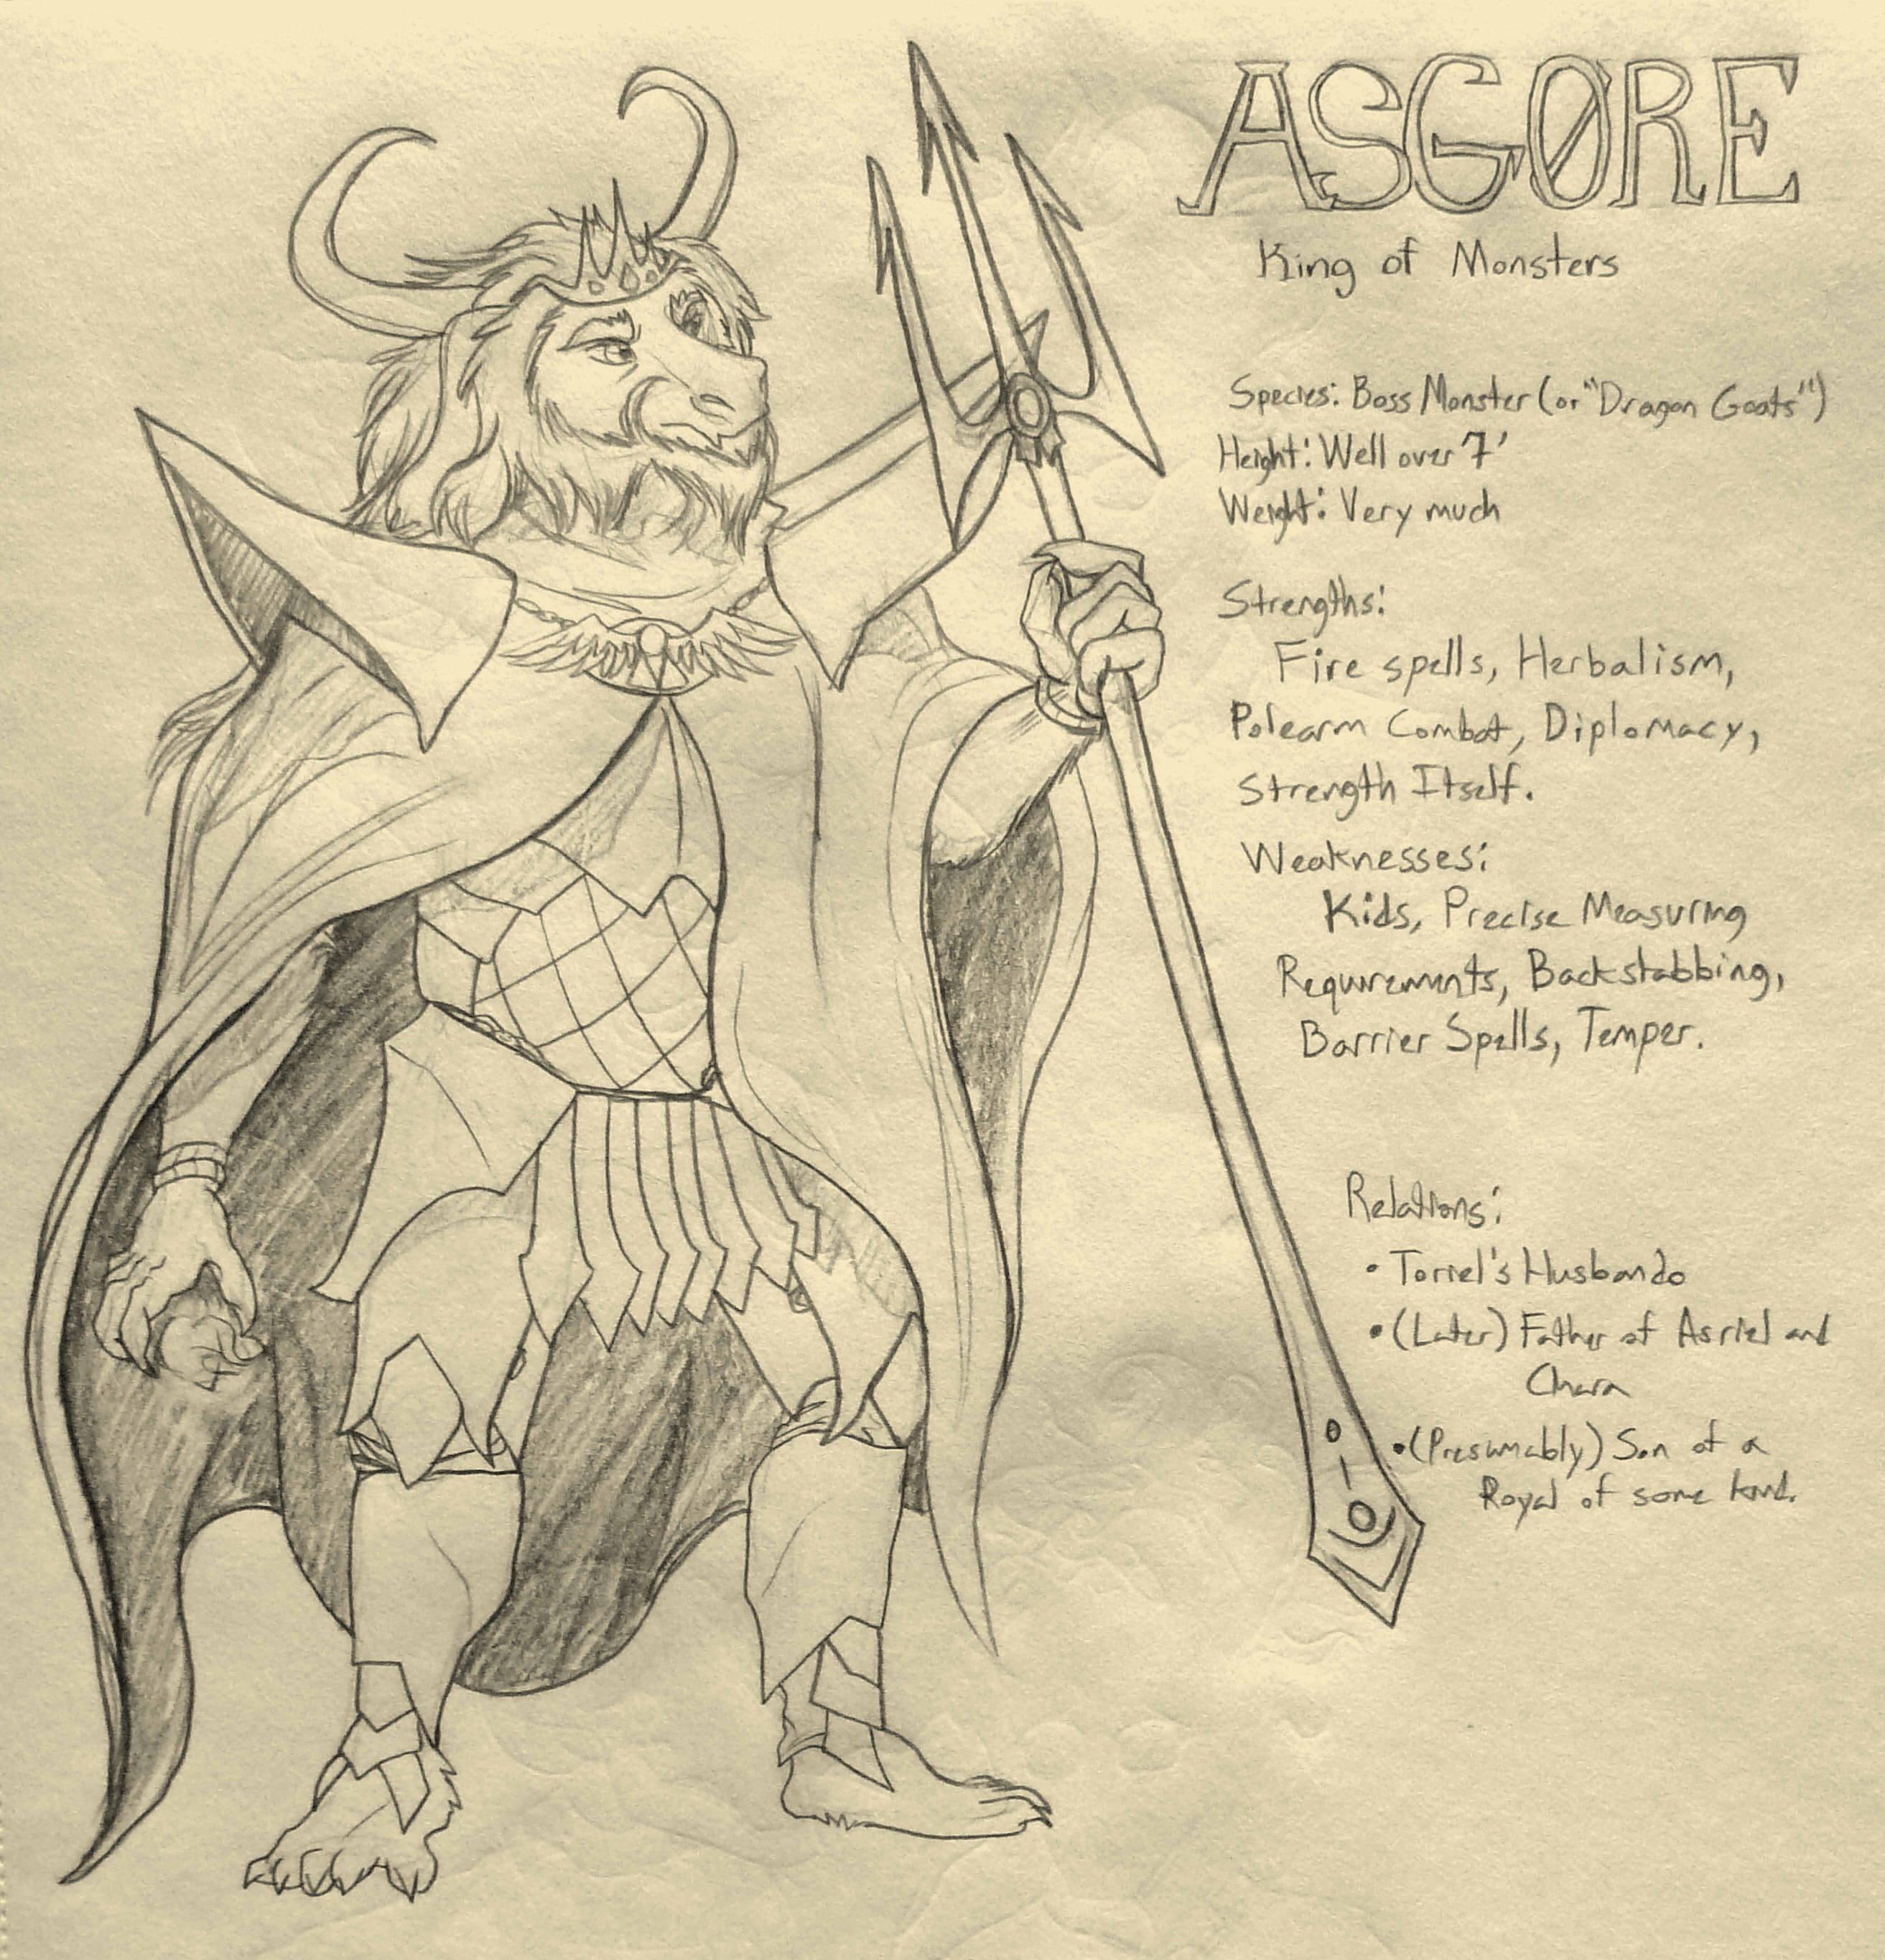 ASGØRE
King of Monsters
Species: Boss Monster (or "Dragon Goats")
Height: Well over 7'
Weight: Very much
Strengths:
Fire spells, Herbalism,
Polearm Combat, Diplomacy,
Strength Itself.
Weaknesses:
Kids, Precise Measuring
Requirements, Backstabbing,
Barrier Spells, Temper.
Relations:
• Toriel's Husbando
• (Later) Father of Asriel and
Chara
• (Presumably) Son of a
Royal of some kind.